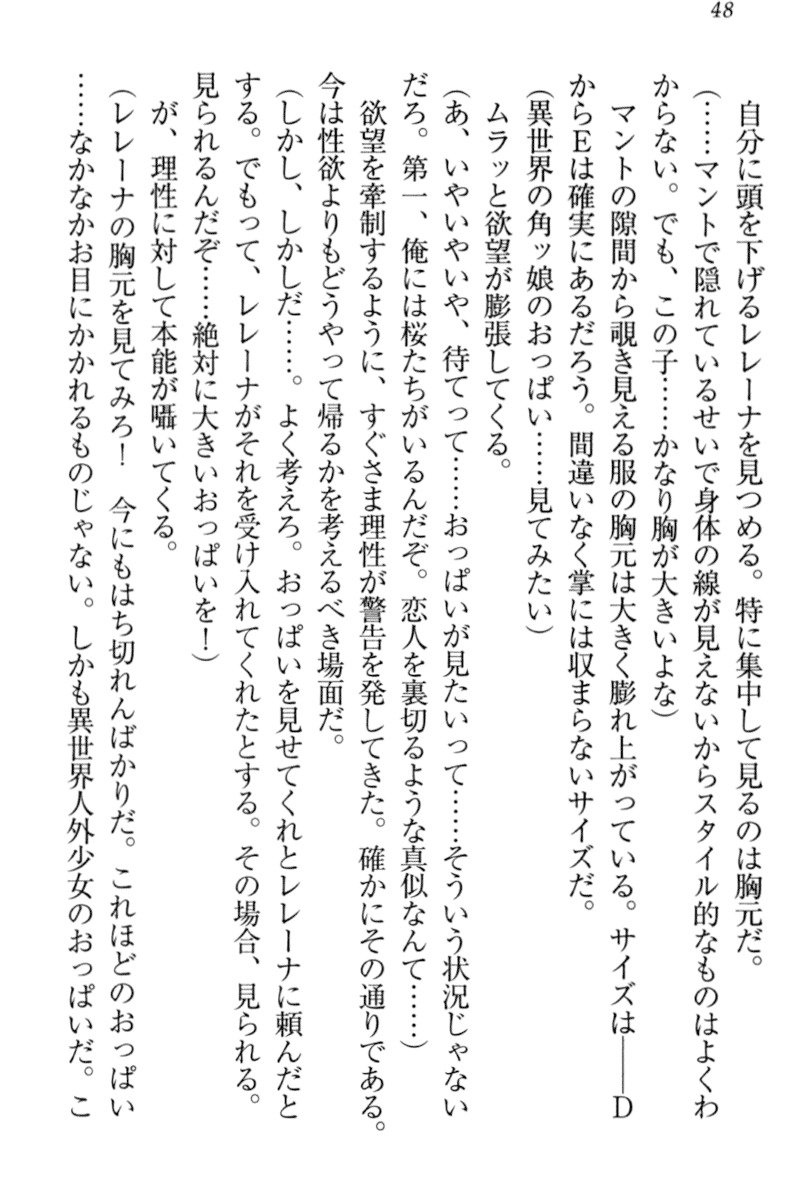 48
自分に頭を下げるレレーナを見つめる。特に集中して見るのは胸元だ。
(……マントで隠れているせいで身体の線が見えないからスタイル的なものはよくわ
からない。でも、この子……かなり胸が大きいよな)
マントの隙間から覗き見える服の胸元は大きく膨れ上がっている。サイズは――D
からEは確実にあるだろう。間違いなく掌には収まらないサイズだ。
(異世界の角ッ娘のおっぱい……見てみたい)
ムラッと欲望が膨張してくる。
(あ、いやいやいや、待てって……おっぱいが見たいって……そういう状況じゃない
だろ。第一、俺には桜たちがいるんだぞ。恋人を裏切るような真似なんて……)
欲望を牽制するように、すぐさま理性が警告を発してきた。確かにその通りである。
今は性欲よりもどうやって帰るかを考えるべき場面だ。
(しかし、しかしだ……。よく考えろ。おっぱいを見せてくれとレレーナに頼んだと
する。でもって、レレーナがそれを受け入れてくれたとする。その場合、見られる。
見られるんだぞ……絶対に大きいおっぱいを！)
が、理性に対して本能が囁いてくる。
(レレーナの胸元を見てみろ！　今にもはち切れんばかりだ。これほどのおっぱい
……なかなかお目にかかれるものじゃない。しかも異世界人外少女のおっぱいだ。こ